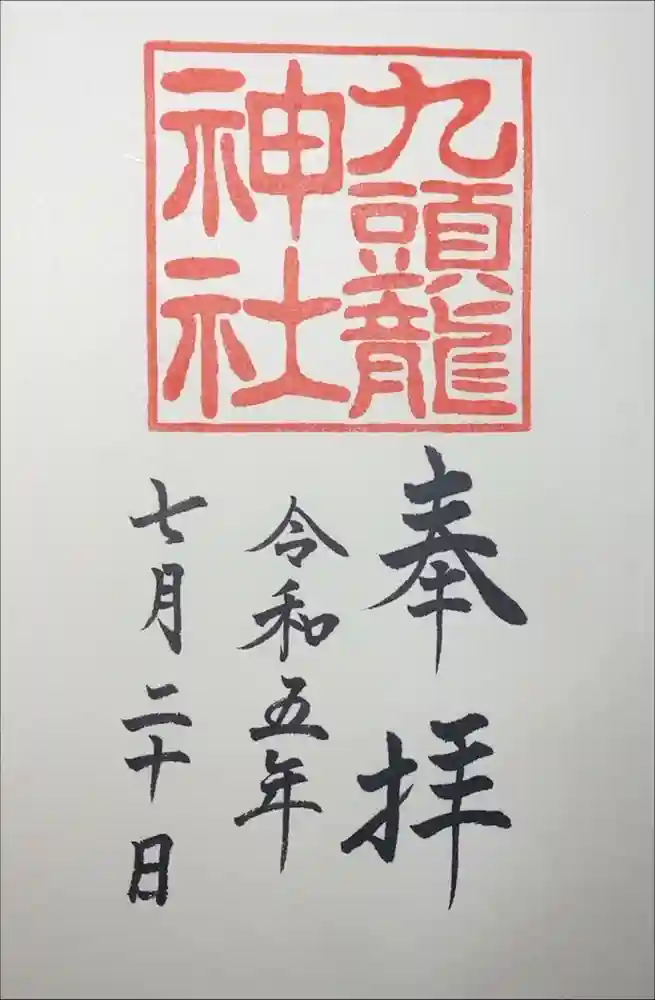 九頭龍
神社
奉拝
令和五年
七月二十日